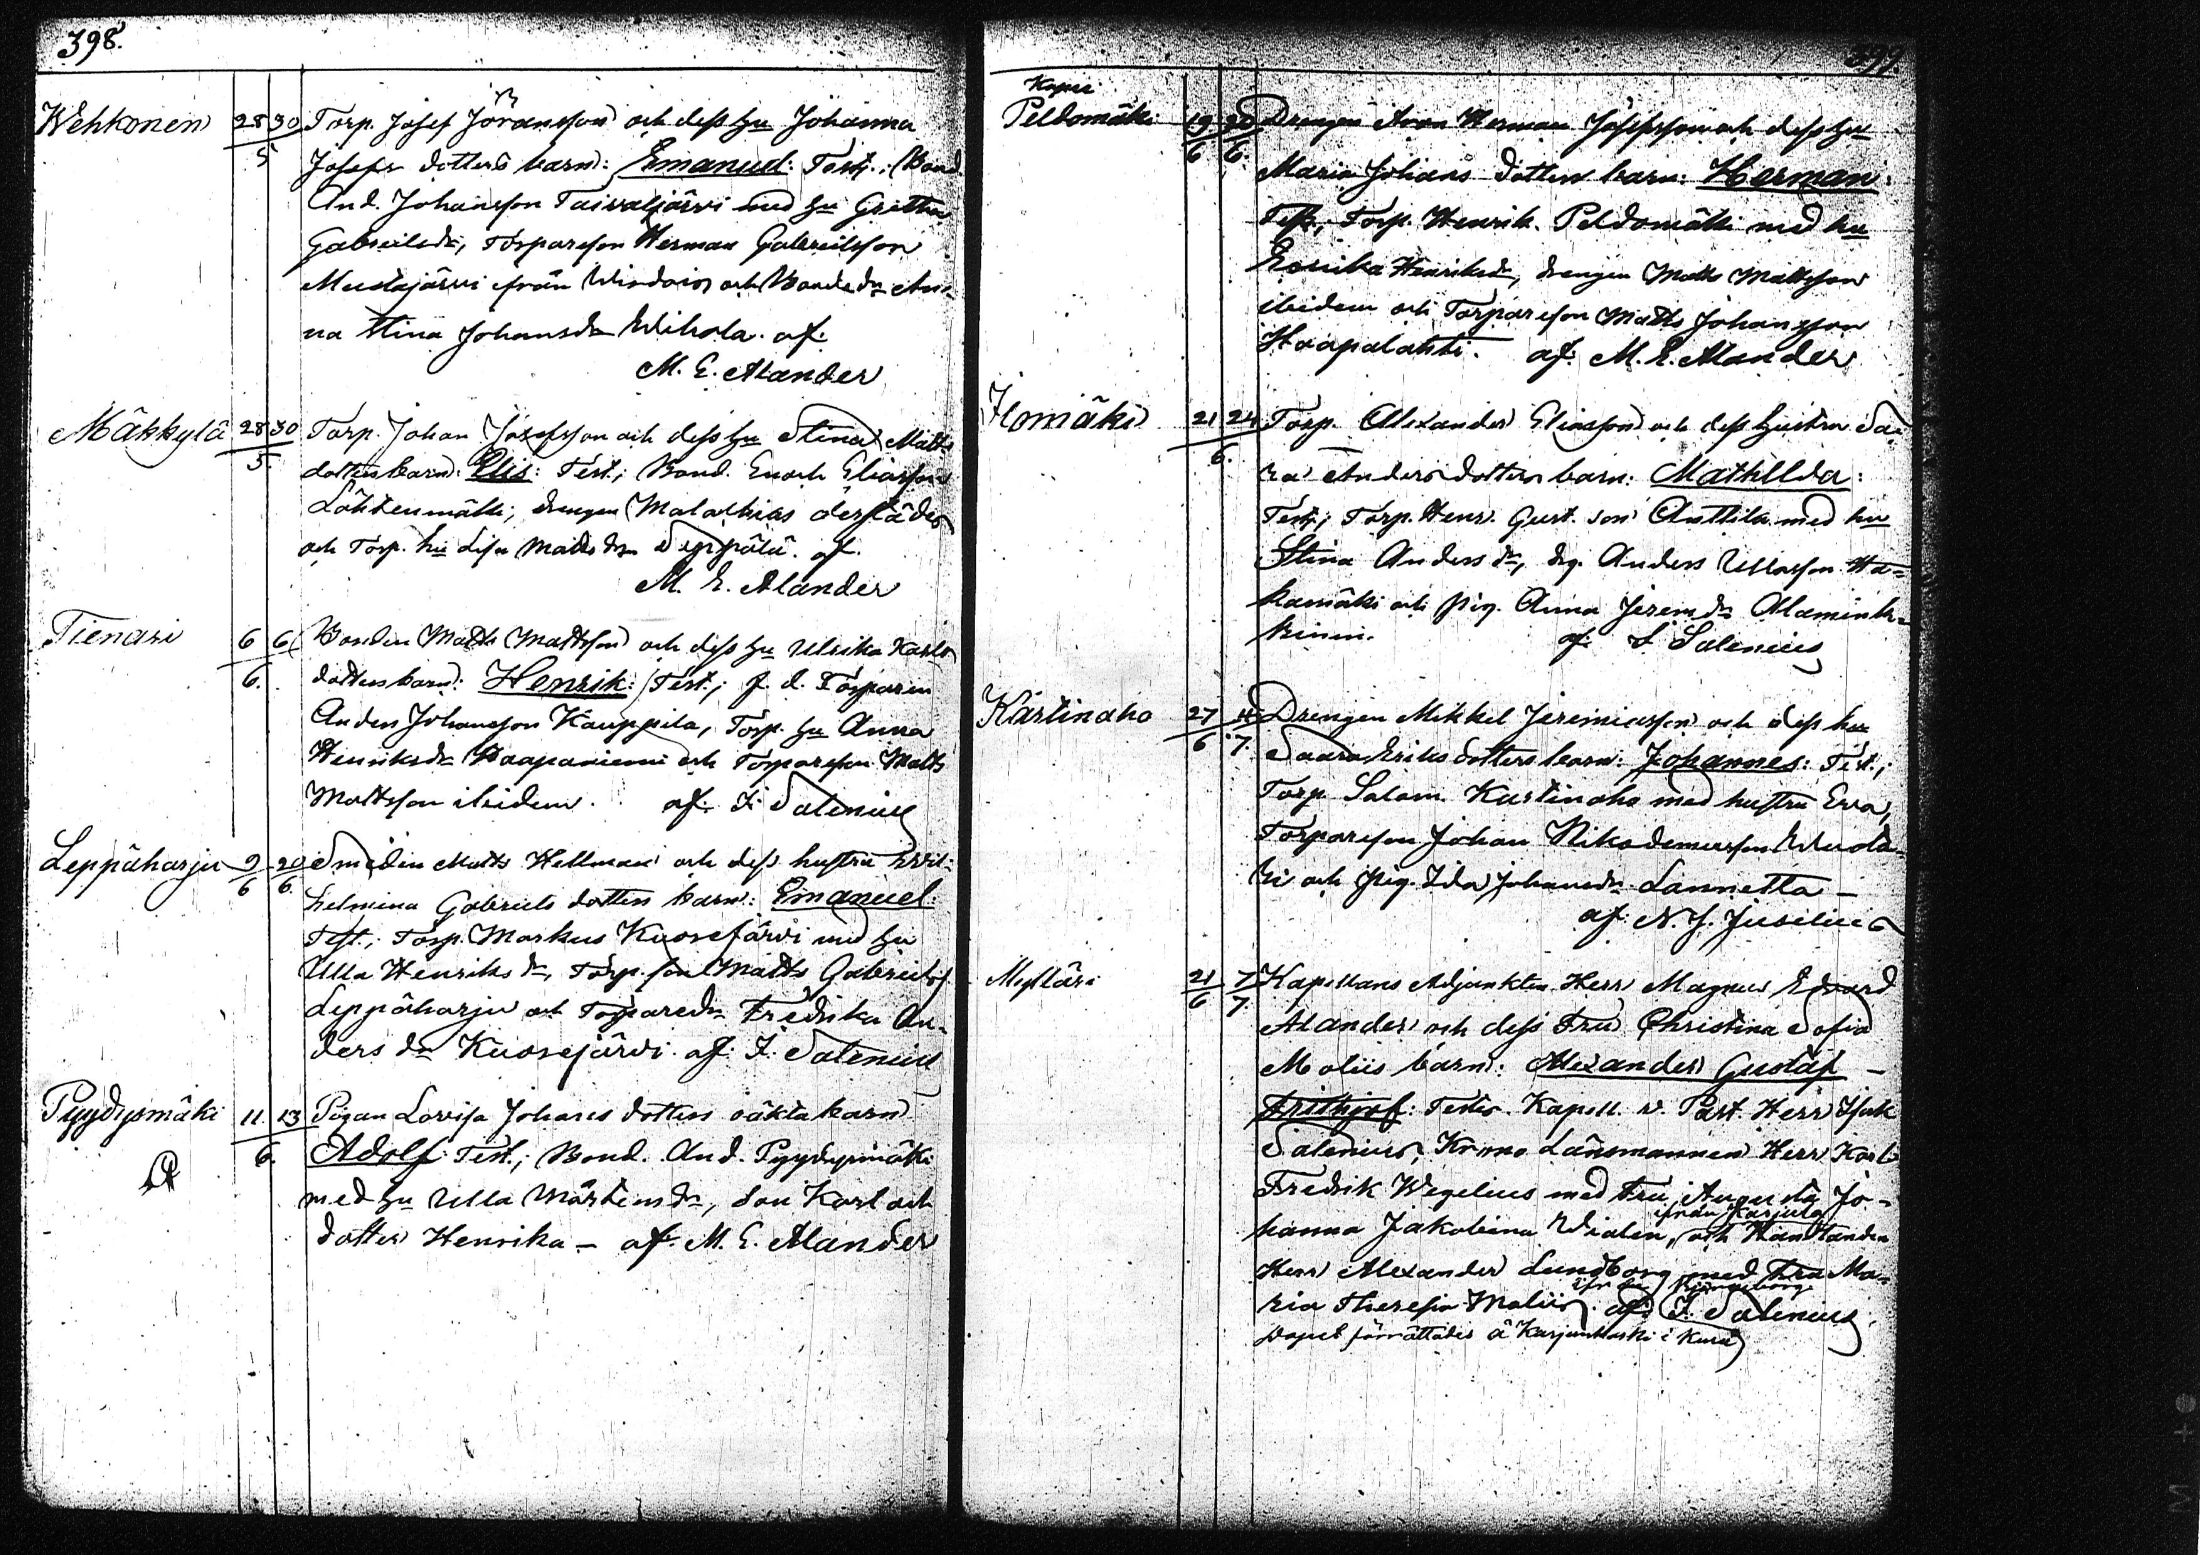 398.
Wehkonen 28 30 Torp. Josef Göransson och dess hu Johanna
5 Josefs dotters barn: Emanuel: Test.; Bond.
And. Johansson Taivaljärvi med hu Gretha
Gabrielsdr, Torpareson Herman Gabrielsson
Mustajärvi ifrån Virdois och Bondedr An-
na Stina Johansdr Wihola. af.
M. E. Alander
Mäkkylä 28 30 Torp. Johan Josefsson och dess hu Stina Matts
5. dotters barn: Elis: Test.; Bond. Enoch Eliasson
Lähteenmäki, drengen Malachias derstädes
och Torp. hu Lisa Mattsdr Seppälä. af.
M. E. Alander
Tienari 6 6 Bonden Matts Mattsson och dess hu Ulrika Karls
6. dotters barn: Henrik: Test.; f. d. Torparen
Anders Johansson Kauppila, Torp. hu Anna
Henriksdr Haapaniemi och Torpareson Matts
Mattsson ibidem. af. I. Salenius
Leppäharju 9 20 Smeden Matts Hellman och dess hustru Wil-
6 6. helmina Gabriels dotters barn: Emanuel:
Test.; Torp. Markus Kuorejärvi med hu
Ulla Henriksdr, Torp. son Matts Gabrielss.
Leppäharju och Torparedr Fredrika An-
ders dr Kuorejärvi. af. I. Salenius
Pyydysmäki 11 13 Pigan Lovisa Johans dotters oäkta barn
6. Adolf: Test.; Bond. And. Pyydysmäki
med hu Ulla Mårtensdr, son Karl och
dotter Henrika – af. M. E. Alander
399.
Peldomäki 19 20 Drengen Aron Herman Josefsson och dess hu
6 6. Maria Johans dotters barn: Herman:
Test.; Torp. Henrik Peldomäki med hu
Henriksdr, drengen Matts Mattsson
ibidem och Torpareson Matts Johansson
Haapalahti. af. M. E. Alander
Ilomäki 21 24 Torp. Alexander Eliasson och dess hustru Sa-
6. ra Anders dotters barn: Mathillda:
Test.; Torp. Henr. Gust. son Anttila med hu
Stina Andersdr, drg. Anders Ullasson Ha-
kamäki och pig. Anna Jeremdr Alamink-
kinen. af I Salenius
Kärtinaho 27 4 Drengen Mikkel Jeremiasson och dess hu
6 7. Saara Eriks dotters barn: Johannes: Test.;
Torp. Salom. Kärtinaho med hustru Eva,
Torpareson Johan Nikodemusson
och pig. Ida Johansdr Lannetta –
af. N. J. Juselius
Mylläri 21 7 Kapellans Adjunkten Herr Magnus Edvard
6 7. Alander och dess Fru Christina Sofia
Moliis barn: Alexander Gustaf
Frithjof: Testes. Kapell. v. Past. Herr Isak
Salenius, Krono Länsmannen Herr Karl
Fredrik Wegelius med Fru Augusta Jo-
ifrån Karjula
hanna Jakobina Wialen, och Handlanden
Herr Alexander Lundborg med Fru Ma-
ifrån Björneborg
ria Theresia Moliis. af. I. Salenius
Dopet förrättades å Karjunkoski i Kuru